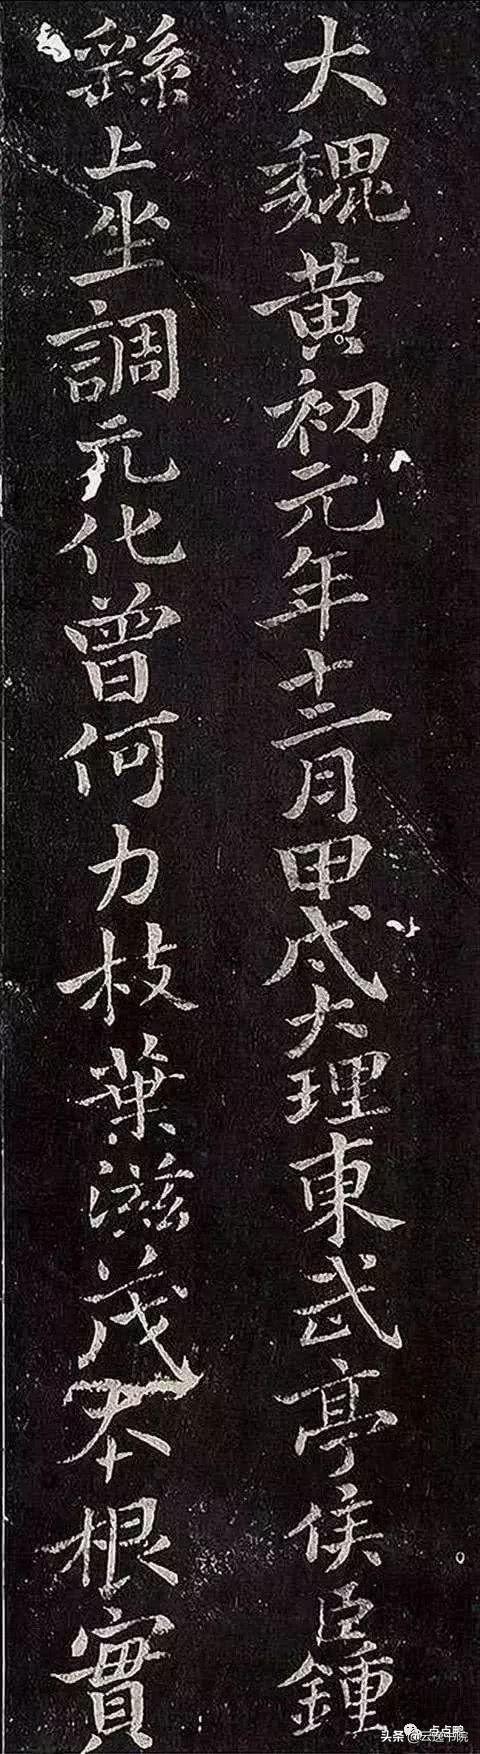 大魏黄初元年十二月甲戌大理東武亭侯臣鍾
繇上坐調元化曾何力枝葉滋茂本根實
点点
头条 @云逸书院